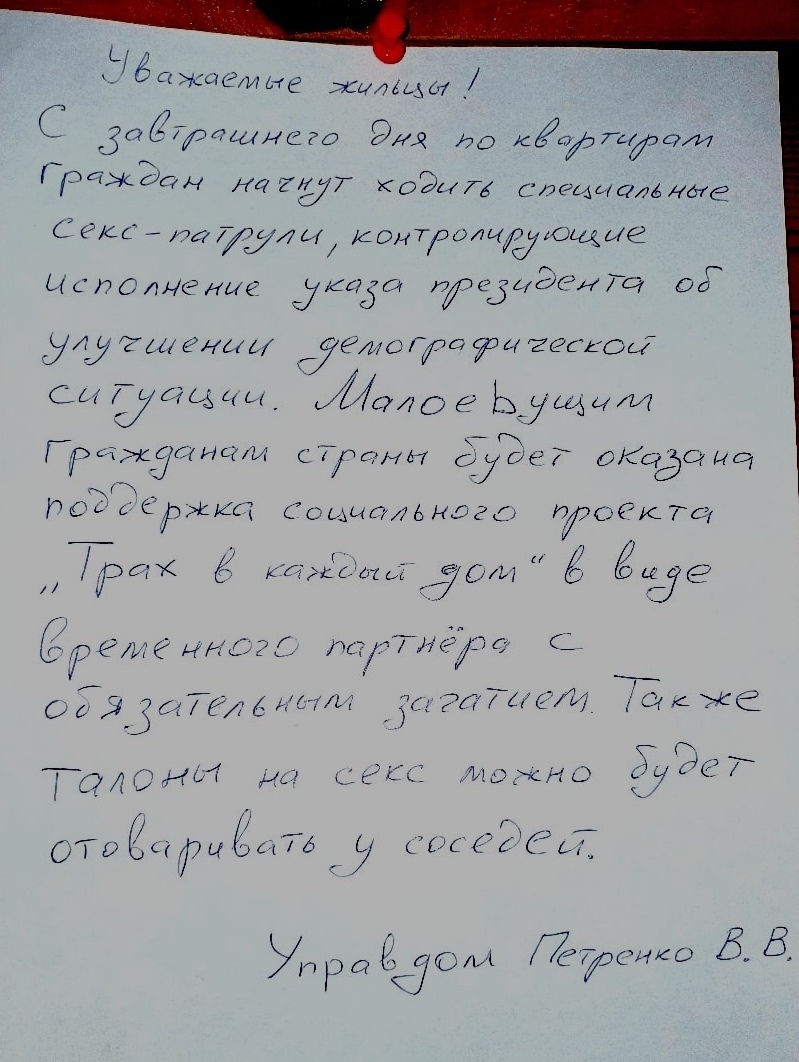 Уважаемые жильцы!
С завтрашнего дня по квартирам
граждан начнут ходить специальные
секс-патрули, контролирующие
исполнение указа президента об
улучшении демографической
ситуации. Малоебущим
гражданам страны будет оказана
поддержка социального проекта
„Трах в каждый дом“ в виде
временного партнёра с
обязательным зачатием. Также
талоны на секс можно будет
отоваривать у соседей.
Управдом Петренко В. В.